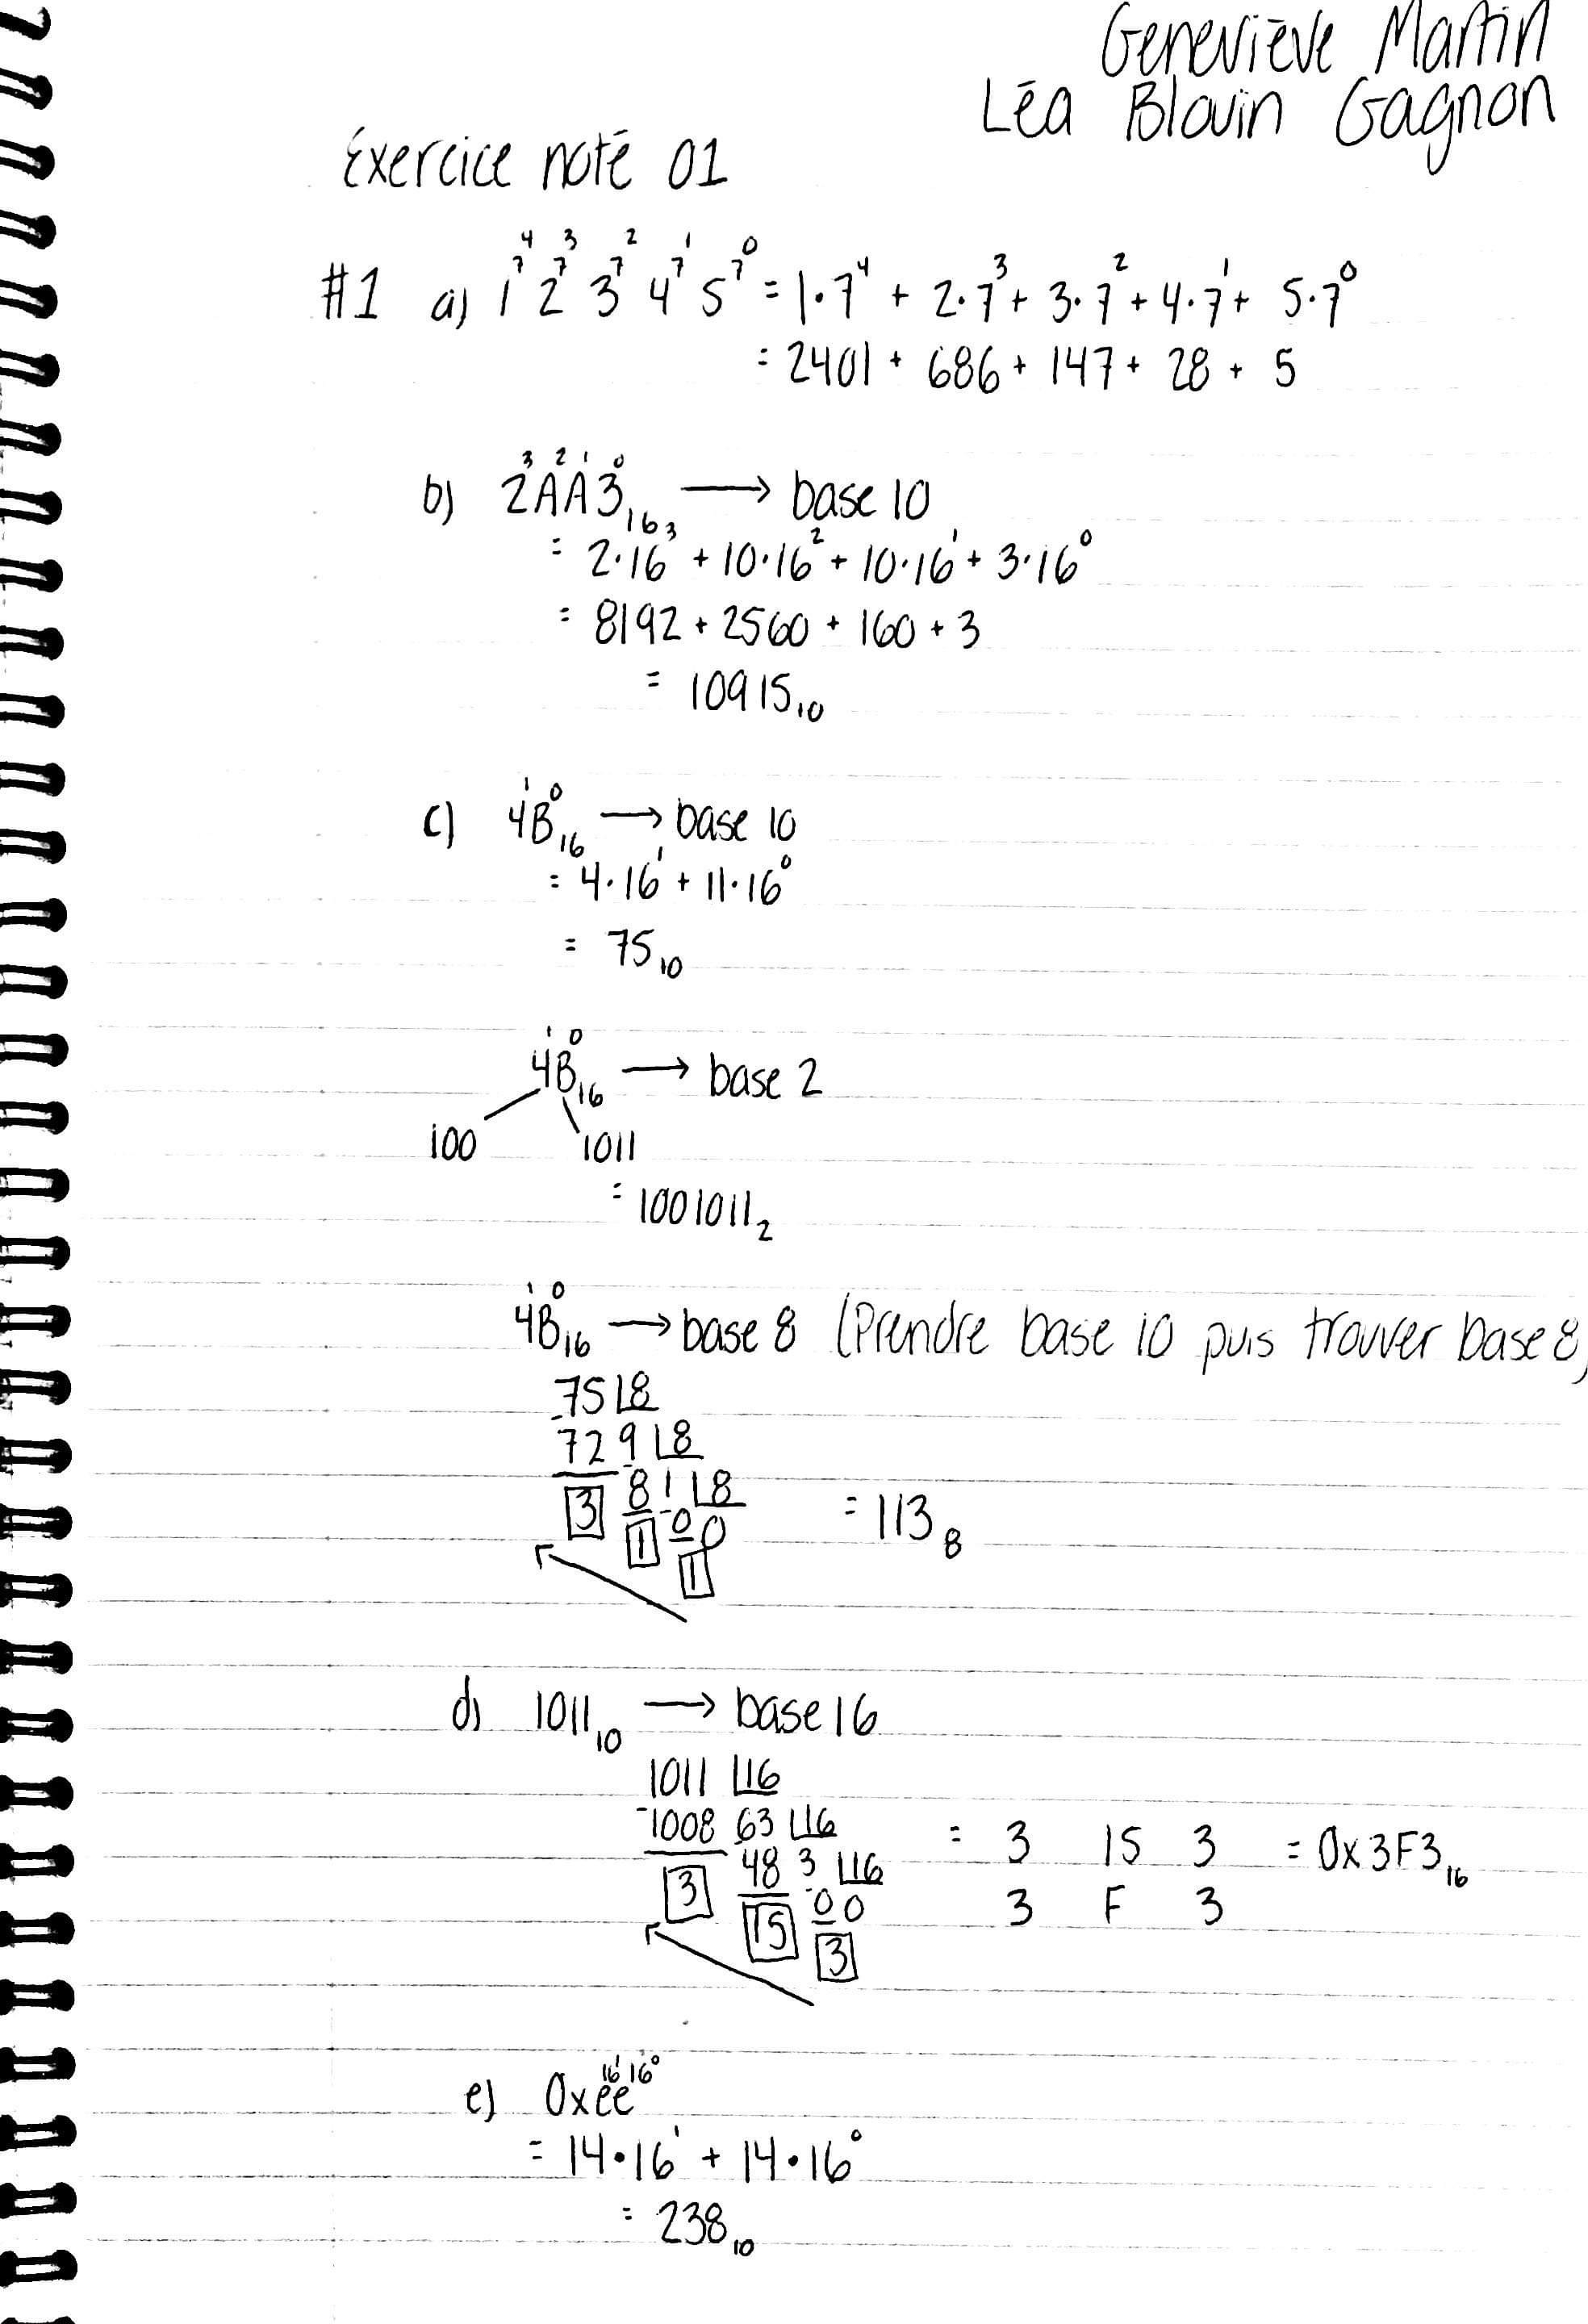 Geneviève Martin
Léa Blouin Gagnon
Exercice noté 01
4 3 2 1 0
7 7 7 7 7
#1 a) 1 2 3 4 5 = 1·7⁴ + 2·7³ + 3·7² + 4·7¹ + 5·7⁰
= 2401 + 686 + 147 + 28 + 5
3 2 1 0
b) 2AA3₁₆ → base 10
= 2·16³ + 10·16² + 10·16¹ + 3·16⁰
= 8192 + 2560 + 160 + 3
= 10915₁₀
1 0
c) 4B₁₆ → base 10
= 4·16¹ + 11·16⁰
= 75₁₀
1 0
4B₁₆ → base 2
100 1011
= 1001011₂
1 0
4B₁₆ → base 8 (Prendre base 10 puis trouver base 8)
75 8
-72 9 8
3 8 1 8 = 113₈
1 0 0
1
d) 1011₁₀ → base 16
1011 16
-1008 63 16 = 3 15 3 = 0x3F3₁₆
3 48 3 16
15 0 0 3 F 3
3
16¹ 16⁰
e) 0xee
= 14·16¹ + 14·16⁰
= 238₁₀